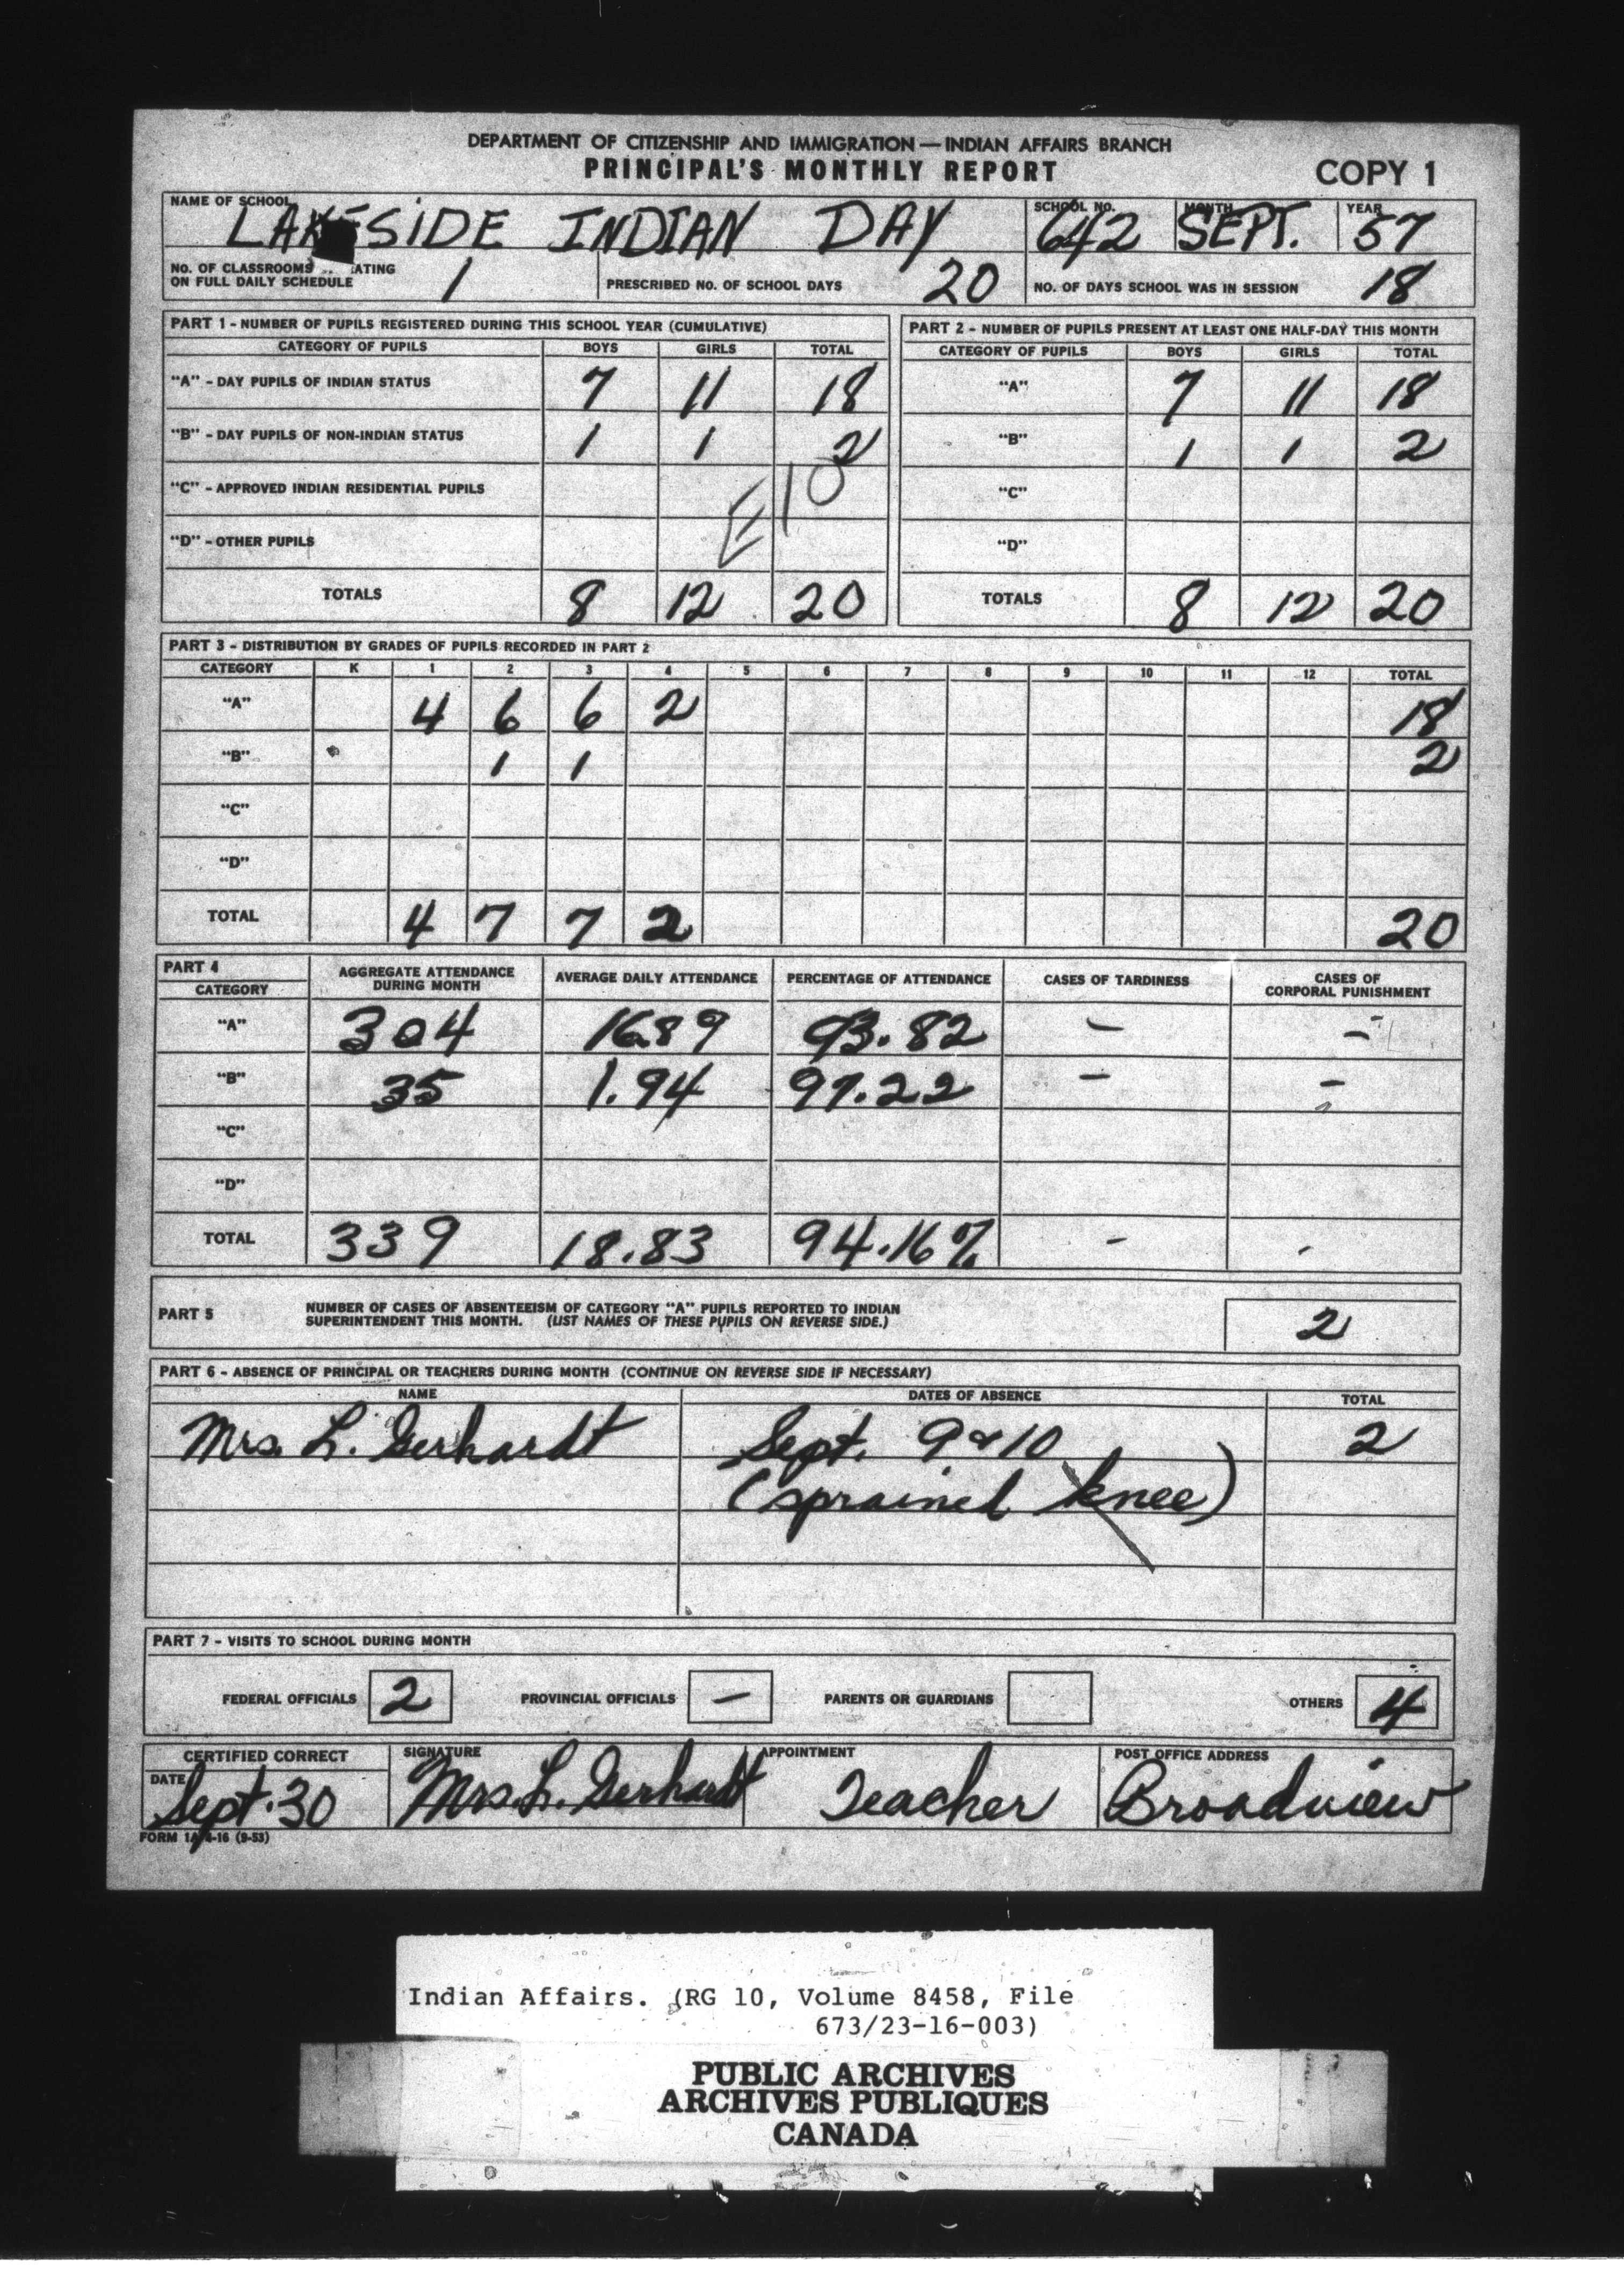 DEPARTMENT OF CITIZENSHIP AND IMMIGRATION — INDIAN AFFAIRS BRANCH
PRINCIPAL'S MONTHLY REPORT COPY 1
NAME OF SCHOOL SCHOOL NO. MONTH YEAR
LAKESIDE INDIAN DAY 642 SEPT. 57
NO. OF CLASSROOMS ATING
ON FULL DAILY SCHEDULE 1 PRESCRIBED NO. OF SCHOOL DAYS 20 NO. OF DAYS SCHOOL WAS IN SESSION 18
PART 1 - NUMBER OF PUPILS REGISTERED DURING THIS SCHOOL YEAR (CUMULATIVE)
CATEGORY OF PUPILS BOYS GIRLS TOTAL
"A" - DAY PUPILS OF INDIAN STATUS 7 11 18
"B" - DAY PUPILS OF NON-INDIAN STATUS 1 1 2
"C" - APPROVED INDIAN RESIDENTIAL PUPILS
"D" - OTHER PUPILS
TOTALS 8 12 20
PART 2 - NUMBER OF PUPILS PRESENT AT LEAST ONE HALF-DAY THIS MONTH
CATEGORY OF PUPILS BOYS GIRLS TOTAL
"A" 7 11 18
"B" 1 1 2
"C"
"D"
TOTALS 8 12 20
PART 3 - DISTRIBUTION BY GRADES OF PUPILS RECORDED IN PART 2
CATEGORY K 1 2 3 4 5 6 7 8 9 10 11 12 TOTAL
"A" 4 6 6 2 18
"B" 1 1 2
"C"
"D"
TOTAL 4 7 7 2 20
PART 4
CATEGORY AGGREGATE ATTENDANCE DURING MONTH AVERAGE DAILY ATTENDANCE PERCENTAGE OF ATTENDANCE CASES OF TARDINESS CASES OF CORPORAL PUNISHMENT
"A" 304 16.89 93.82 - -
"B" 35 1.94 97.22 - -
"C"
"D"
TOTAL 339 18.83 94.16% - -
PART 5 NUMBER OF CASES OF ABSENTEEISM OF CATEGORY "A" PUPILS REPORTED TO INDIAN
SUPERINTENDENT THIS MONTH. (LIST NAMES OF THESE PUPILS ON REVERSE SIDE.) 2
PART 6 - ABSENCE OF PRINCIPAL OR TEACHERS DURING MONTH (CONTINUE ON REVERSE SIDE IF NECESSARY)
NAME DATES OF ABSENCE TOTAL
Mrs. L. Gerhardt Sept. 9 & 10 2
(sprained knee)
PART 7 - VISITS TO SCHOOL DURING MONTH
FEDERAL OFFICIALS 2 PROVINCIAL OFFICIALS - PARENTS OR GUARDIANS OTHERS 4
CERTIFIED CORRECT SIGNATURE APPOINTMENT POST OFFICE ADDRESS
DATE Sept. 30 Mrs. L. Gerhardt Teacher Broadview
FORM 1A 4-16 (9-53)
Indian Affairs. (RG 10, Volume 8458, File
673/23-16-003)
PUBLIC ARCHIVES
ARCHIVES PUBLIQUES
CANADA